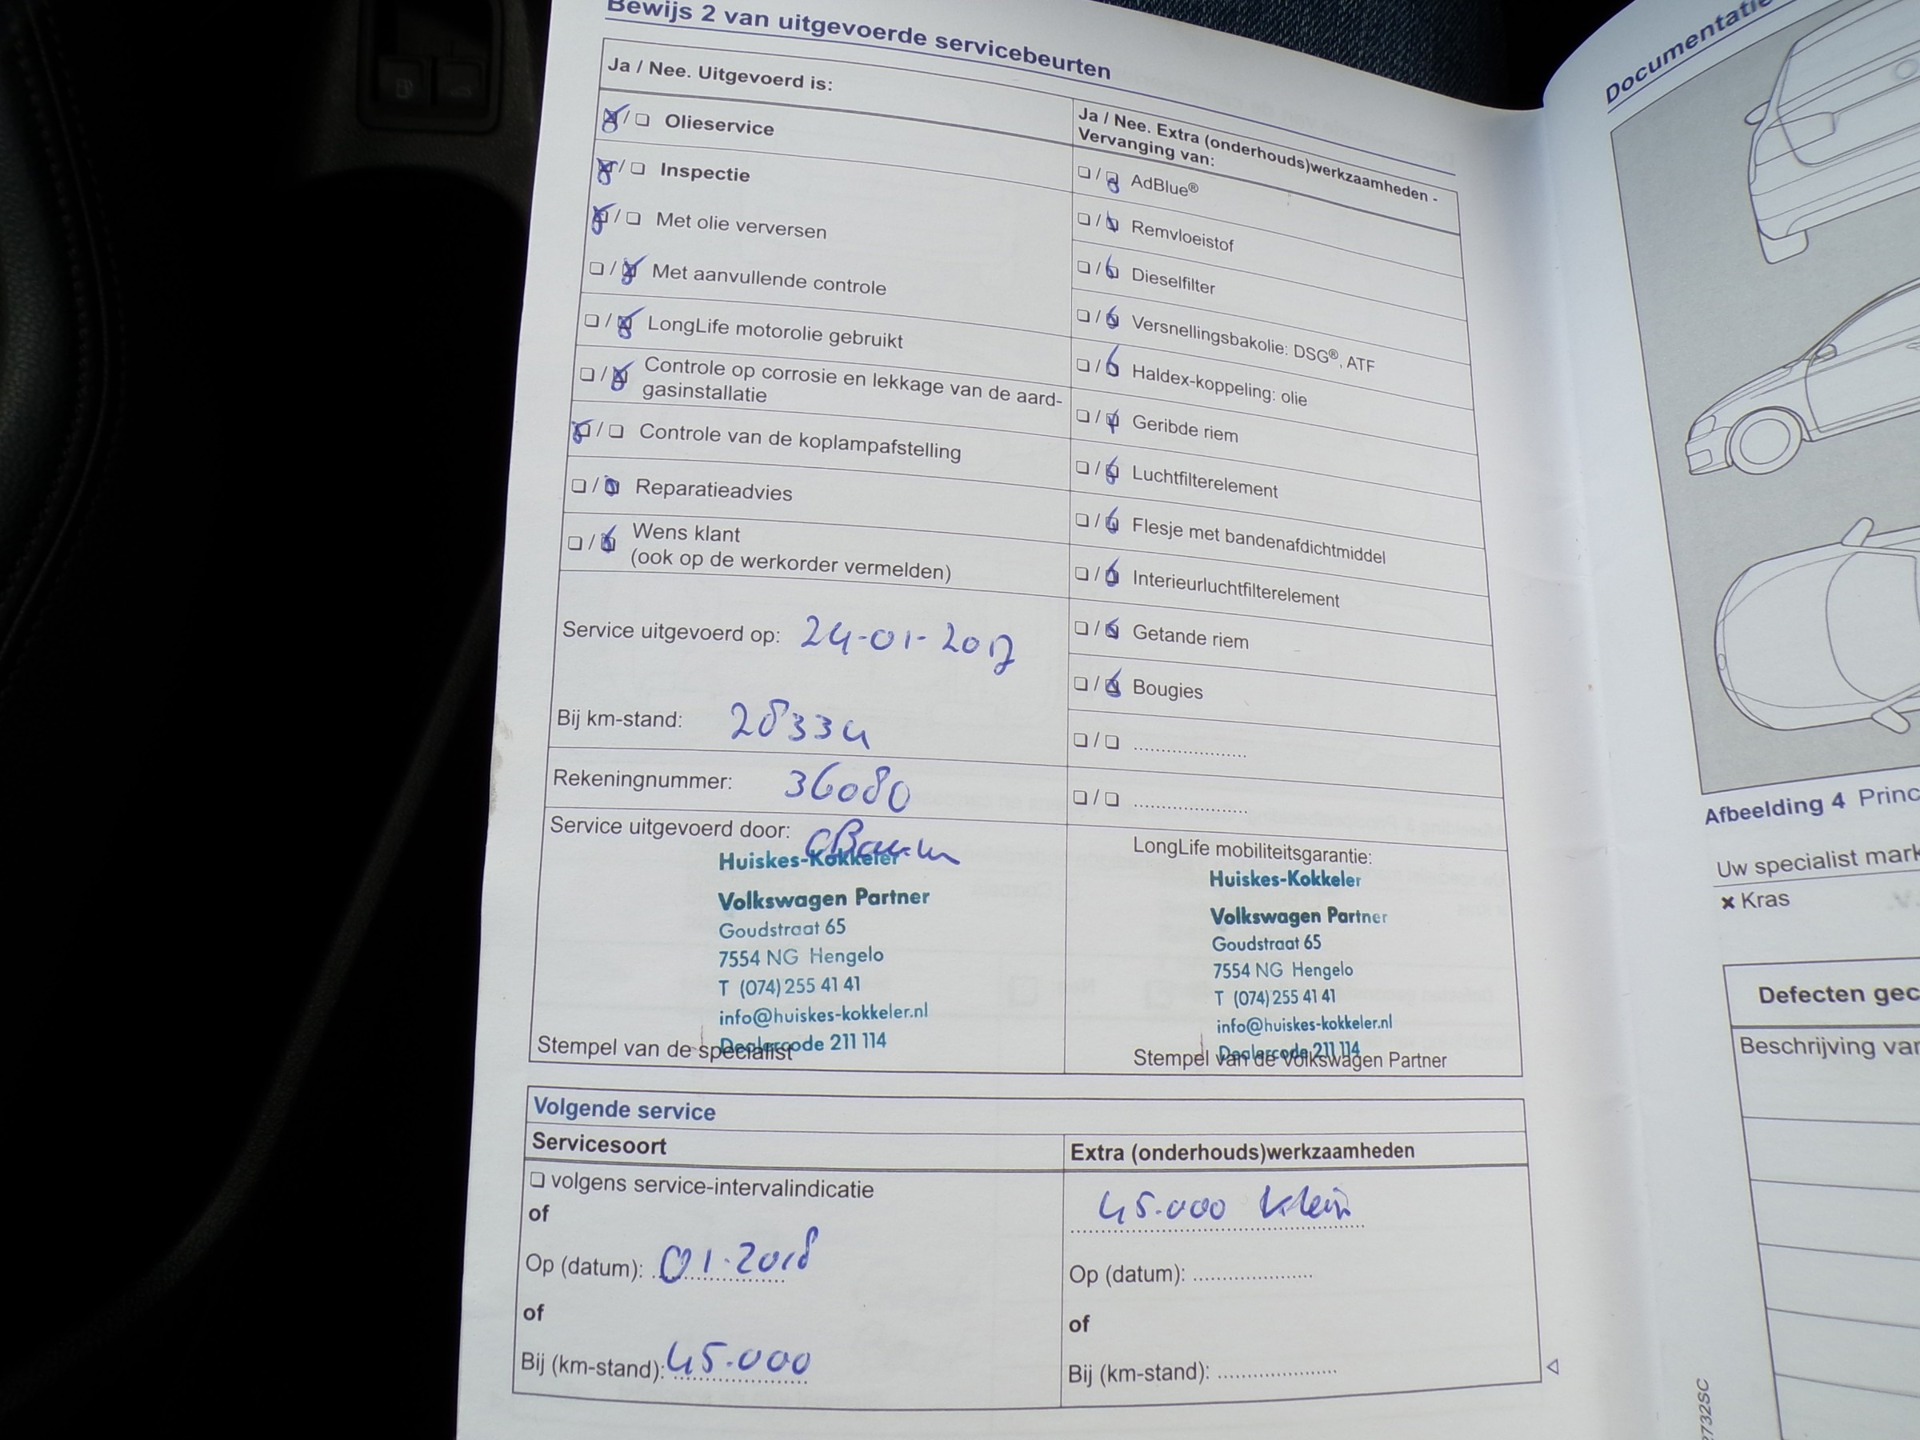 Bewijs 2 van uitgevoerde servicebeurten
Ja / Nee. Uitgevoerd is:
Olieservice
Inspectie
Met olie verversen
Met aanvullende controle
LongLife motorolie gebruikt
Controle op corrosie en lekkage van de aard-
gasinstallatie
Controle van de koplampafstelling
Reparatieadvies
Wens klant
(ook op de werkorder vermelden)
Service uitgevoerd op: 24-01-2017
Bij km-stand: 28334
Rekeningnummer: 36080
Service uitgevoerd door:
Huiskes-Kokkeler
Volkswagen Partner
Goudstraat 65
7554 NG Hengelo
T (074) 255 41 41
info@huiskes-kokkeler.nl
Dealercode 211 114
Stempel van de specialist
Ja / Nee. Extra (onderhouds)werkzaamheden -
Vervanging van:
AdBlue®
Remvloeistof
Dieselfilter
Versnellingsbakolie: DSG®, ATF
Haldex-koppeling: olie
Geribde riem
Luchtfilterelement
Flesje met bandenafdichtmiddel
Interieurluchtfilterelement
Getande riem
Bougies
LongLife mobiliteitsgarantie:
Huiskes-Kokkeler
Volkswagen Partner
Goudstraat 65
7554 NG Hengelo
T (074) 255 41 41
info@huiskes-kokkeler.nl
Dealercode 211 114
Stempel van de Volkswagen Partner
Volgende service
Servicesoort
volgens service-intervalindicatie
of
Op (datum): 01-2018
of
Bij (km-stand): 45.000
Extra (onderhouds)werkzaamheden
45.000 klein
Op (datum):
of
Bij (km-stand):
Documentatie
Afbeelding 4 Princ
Uw specialist mark
Kras
Defecten gec
Beschrijving van
2732SC